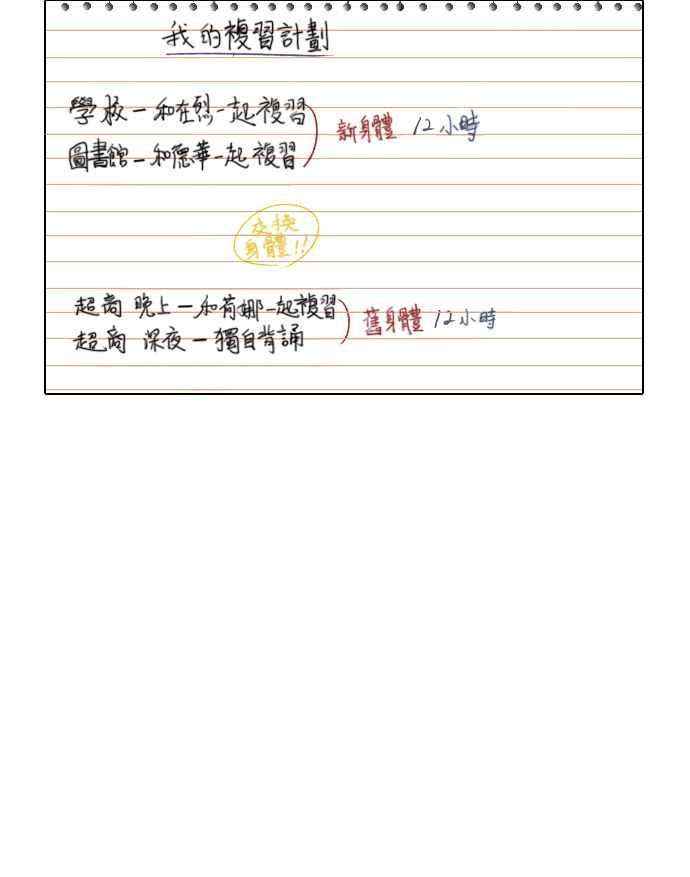 我的複習計劃
學校－和在烈一起複習
圖書館－和德華一起複習
新身體 12小時
交換
身體!!
超商 晚上－和荷娜一起複習
超商 深夜－獨自背誦
舊身體 12小時